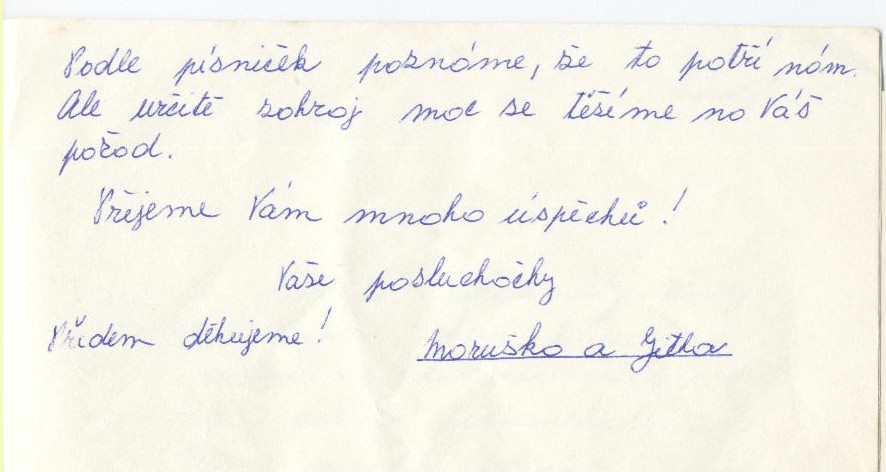 Podle písniček poznáme, že to patří nám.
Ale určitě zahraj moc se těšíme na Váš
pořad.
Přejeme Vám mnoho úspěchů!
Vaše posluchačky
Předem děkujeme!
Maruška a Jitka